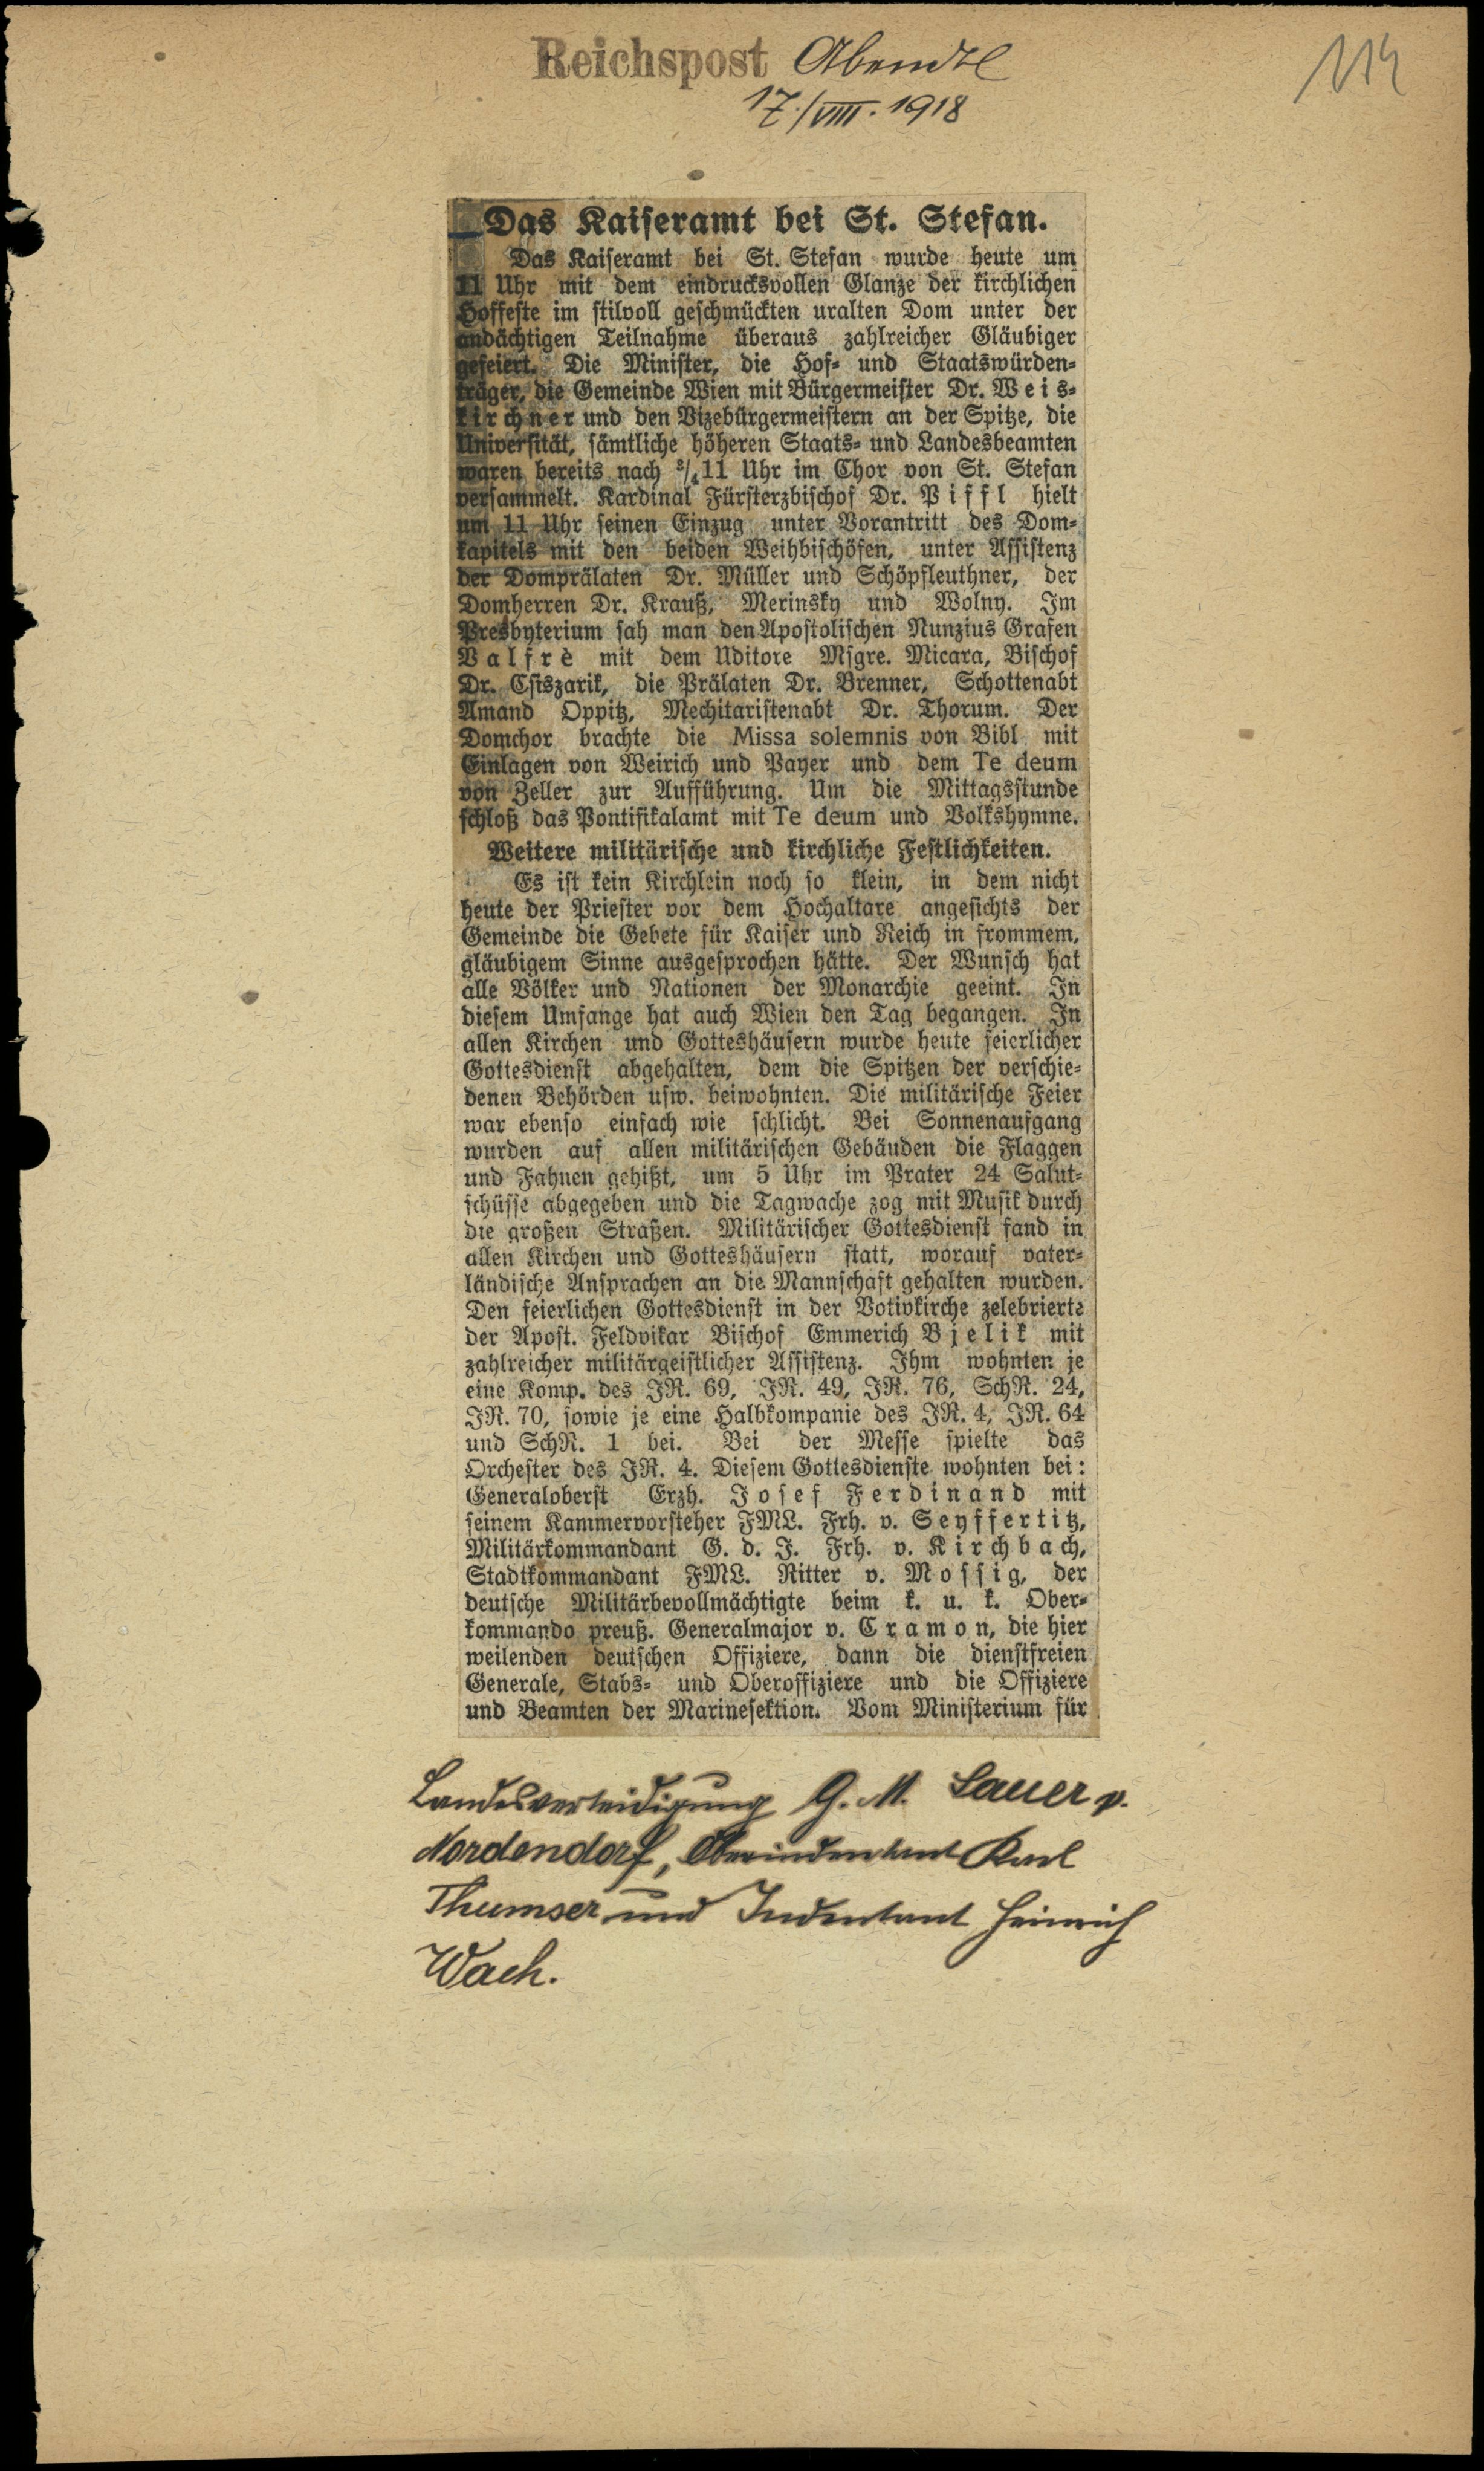 Reichspost Abendbl
114
17./VIII. 1918
Das Kaiseramt bei St. Stefan.
Das Kaiseramt bei St. Stefan wurde heute um
11 Uhr mit dem eindrucksvollen Glanze der kirchlichen
Hoffeste im stilvoll geschmückten uralten Dom unter der
andächtigen Teilnahme überaus zahlreicher Gläubiger
gefeiert. Die Minister, die Hof- und Staatswürden-
träger, die Gemeinde Wien mit Bürgermeister Dr. Weis-
kirchner und den Vizebürgermeistern an der Spitze, die
Universität, sämtliche höheren Staats- und Landesbeamten
waren bereits nach 3/4 11 Uhr im Chor von St. Stefan
versammelt. Kardinal Fürsterzbischof Dr. Piffl hielt
um 11 Uhr seinen Einzug unter Vorantritt des Dom-
kapitels mit den beiden Weihbischöfen, unter Assistenz
der Domprälaten Dr. Müller und Schöpfleuthner, der
Domherren Dr. Krauß, Merinsky und Wolny. Im
Presbyterium sah man den Apostolischen Nunzius Grafen
Valfrè mit dem Uditore Msgre. Micara, Bischof
Dr. Csiszarik, die Prälaten Dr. Brenner, Schottenabt
Amand Oppitz, Mechitaristenabt Dr. Thorum. Der
Domchor brachte die Missa solemnis von Bibl mit
Einlagen von Weirich und Payer und dem Te deum
von Zeller zur Aufführung. Um die Mittagsstunde
schloß das Pontifikalamt mit Te deum und Volkshymne.
Weitere militärische und kirchliche Festlichkeiten.
Es ist kein Kirchlein noch so klein, in dem nicht
heute der Priester vor dem Hochaltare angesichts der
Gemeinde die Gebete für Kaiser und Reich in frommem,
gläubigem Sinne ausgesprochen hätte. Der Wunsch hat
alle Völker und Nationen der Monarchie geeint. In
diesem Umfange hat auch Wien den Tag begangen. In
allen Kirchen und Gotteshäusern wurde heute feierlicher
Gottesdienst abgehalten, dem die Spitzen der verschie-
denen Behörden usw. beiwohnten. Die militärische Feier
war ebenso einfach wie schlicht. Bei Sonnenaufgang
wurden auf allen militärischen Gebäuden die Flaggen
und Fahnen gehißt, um 5 Uhr im Prater 24 Salut-
schüsse abgegeben und die Tagwache zog mit Musik durch
die großen Straßen. Militärischer Gottesdienst fand in
allen Kirchen und Gotteshäusern statt, worauf vater-
ländische Ansprachen an die Mannschaft gehalten wurden.
Den feierlichen Gottesdienst in der Votivkirche zelebrierte
der Apost. Feldvikar Bischof Emmerich Bjelik mit
zahlreicher militärgeistlicher Assistenz. Ihm wohnten je
eine Komp. des IR. 69, IR. 49, IR. 76, SchR. 24,
IR. 70, sowie je eine Halbkompanie des IR. 4, IR. 64
und SchR. 1 bei. Bei der Messe spielte das
Orchester des IR. 4. Diesem Gottesdienste wohnten bei:
Generaloberst Erzh. Josef Ferdinand mit
seinem Kammervorsteher FML. Frh. v. Seyffertitz,
Militärkommandant G. d. I. Frh. v. Kirchbach,
Stadtkommandant FML. Ritter v. Mossig, der
deutsche Militärbevollmächtigte beim k. u. k. Ober-
kommando preuß. Generalmajor v. Cramon, die hier
weilenden deutschen Offiziere, dann die dienstfreien
Generale, Stabs- und Oberoffiziere und die Offiziere
und Beamten der Marinesektion. Vom Ministerium für
Landesverteidigung G. M. Sauer v.
Nordendorf, Oberindentant Karl
Thumser und Indentant Heinrich
Wach.